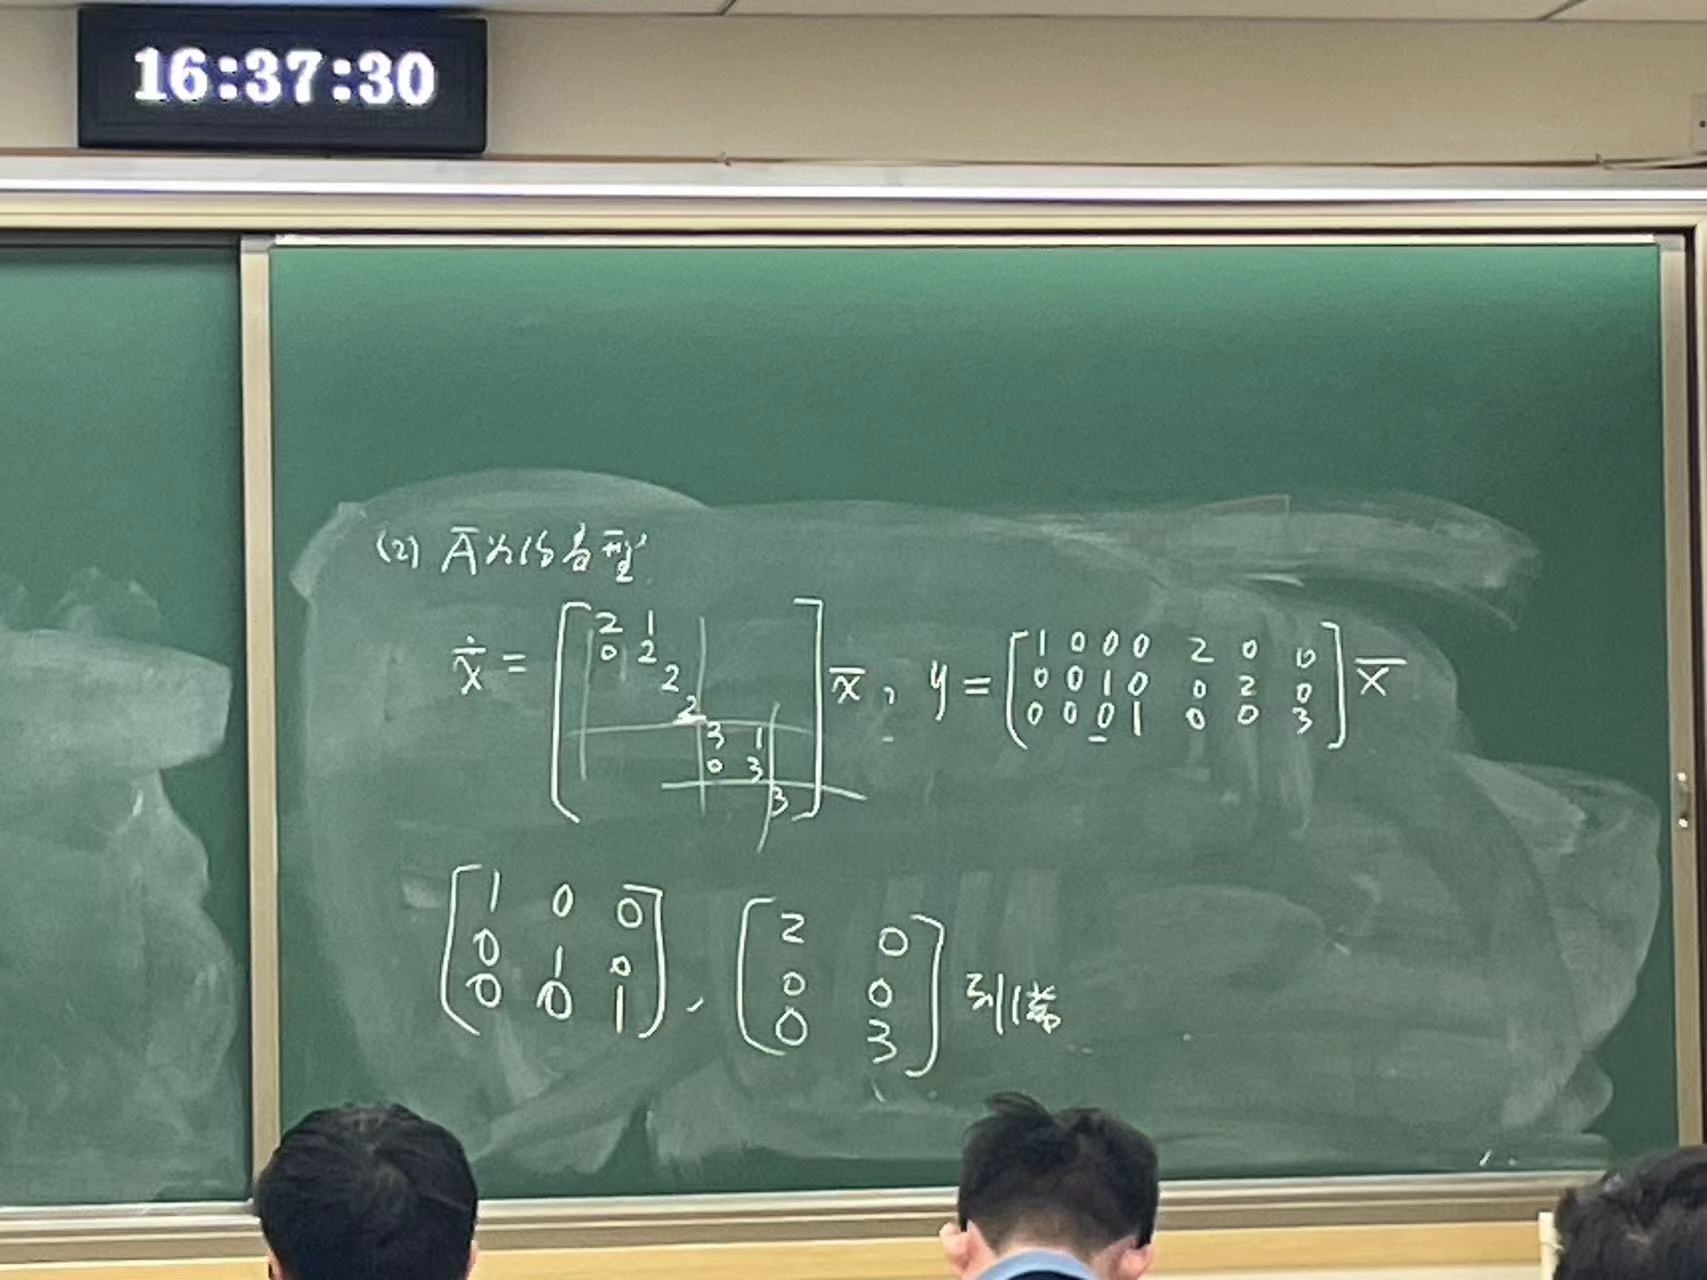 16:37:30
(2) Ā为约当型
ẋ̄ = [2 1; 0 2; 2; 2; 3 1; 0 3; 3] x̄, y = [1 0 0 0 2 0 0; 0 0 1 0 0 2 0; 0 0 0 1 0 0 3] x̄
[1 0 0; 0 1 0; 0 0 1], [2 0; 0 0; 0 3] 列